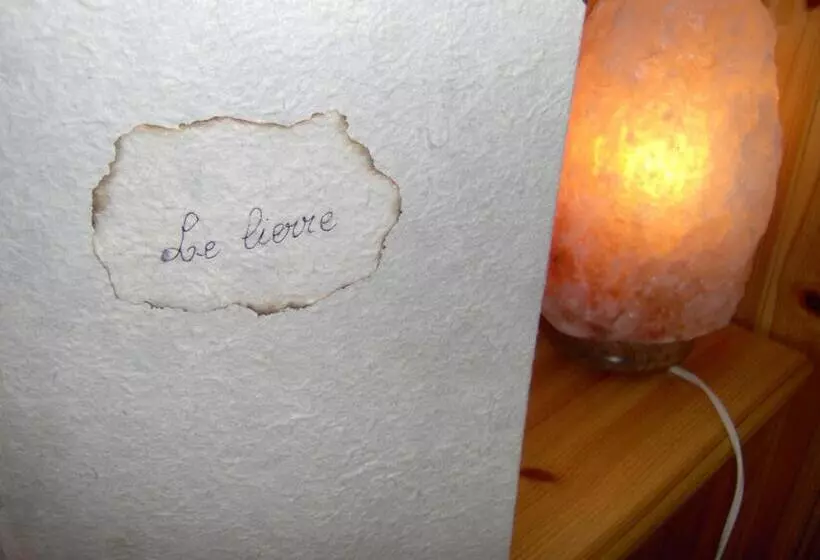 Le lierre